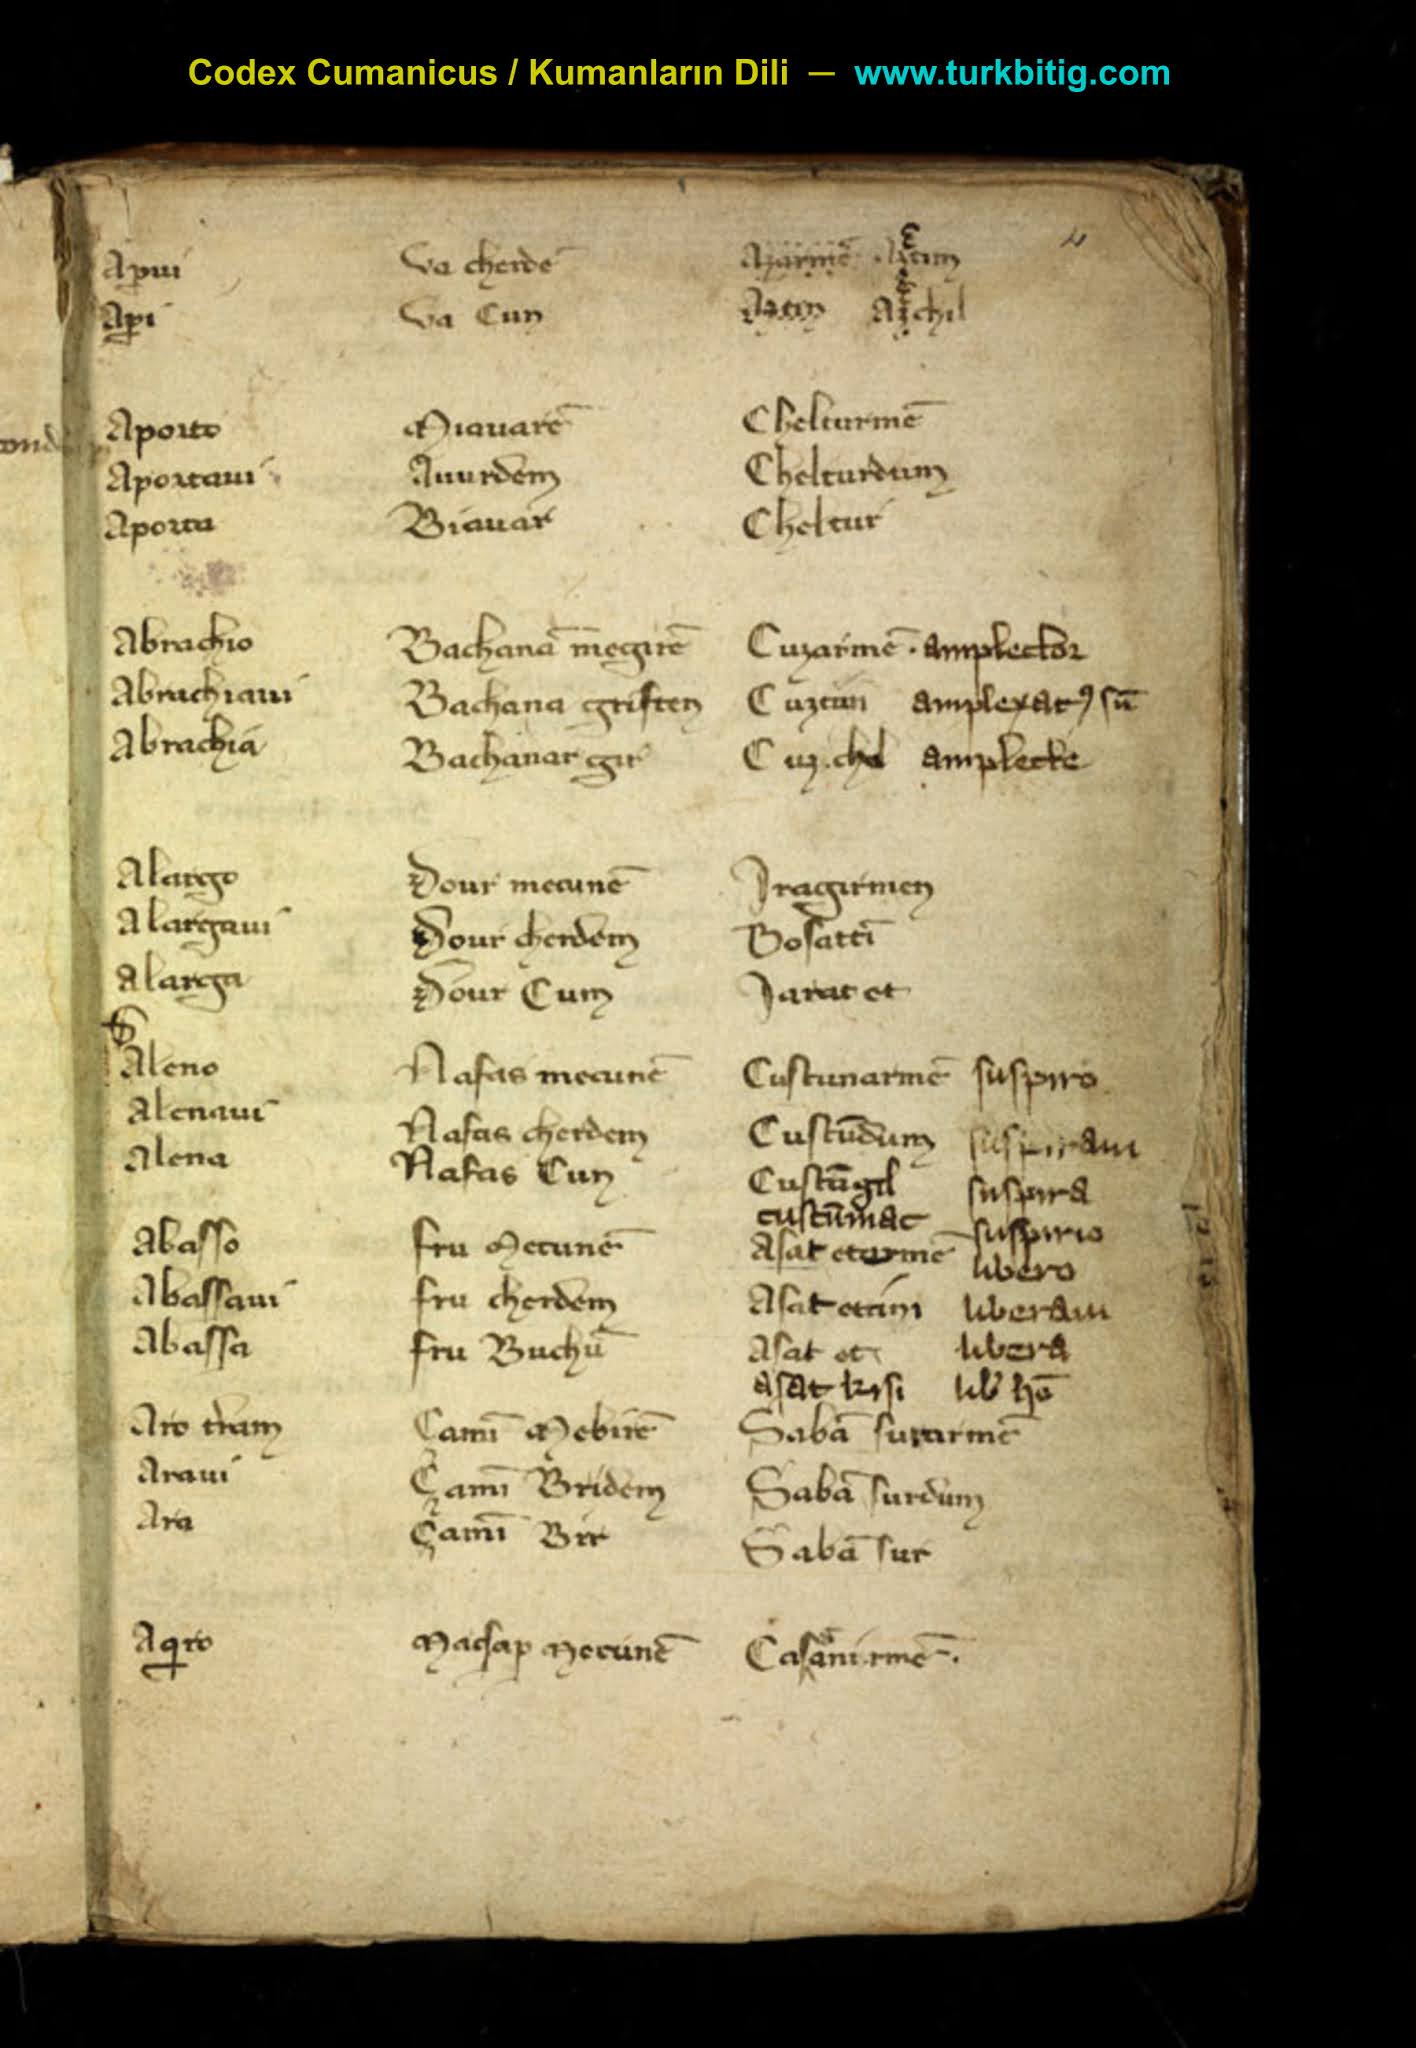 Codex Cumanicus / Kumanların Dili — www.turkbitig.com
4
Apui va cherdē
Api va Cun Azchil
Aporto Miauarē Chelturmē
Aportaui Auurdem Chelturdum
Aporta Biauar Cheltur
Abrachio Bachanā megirē Cuzarmē · amplector
Abrachiaui Bachana griften Cuztun amplexatꝰ sū
Abrachia Bachanar gir Cuz.chel
Alargo Dour mecunē Iragirmen
Alargaui Dour cherdem Bosattī
Alarga Dour Cum Jarat et
Aleno Nafas mecunē Custunarmē suspiro
Alenaui Nafas cherdem Custūdum suspiraui
Alena Nafas Cun Custūgil suspira
custūmac suspirio
Abasso fru Mecunē Asat etarmē libero
Abassaui fru cherdem Asat ettim liberaui
Abassa fru Buchū Asat et libera
asat kisi lib hō
Aro tr̄am Çamī Mebirē Sabā surarmē
Araui Çamī Bridem Sabā surdum
Ara Çamī Bir Sabā sur
Aqro Macsap Mecunē